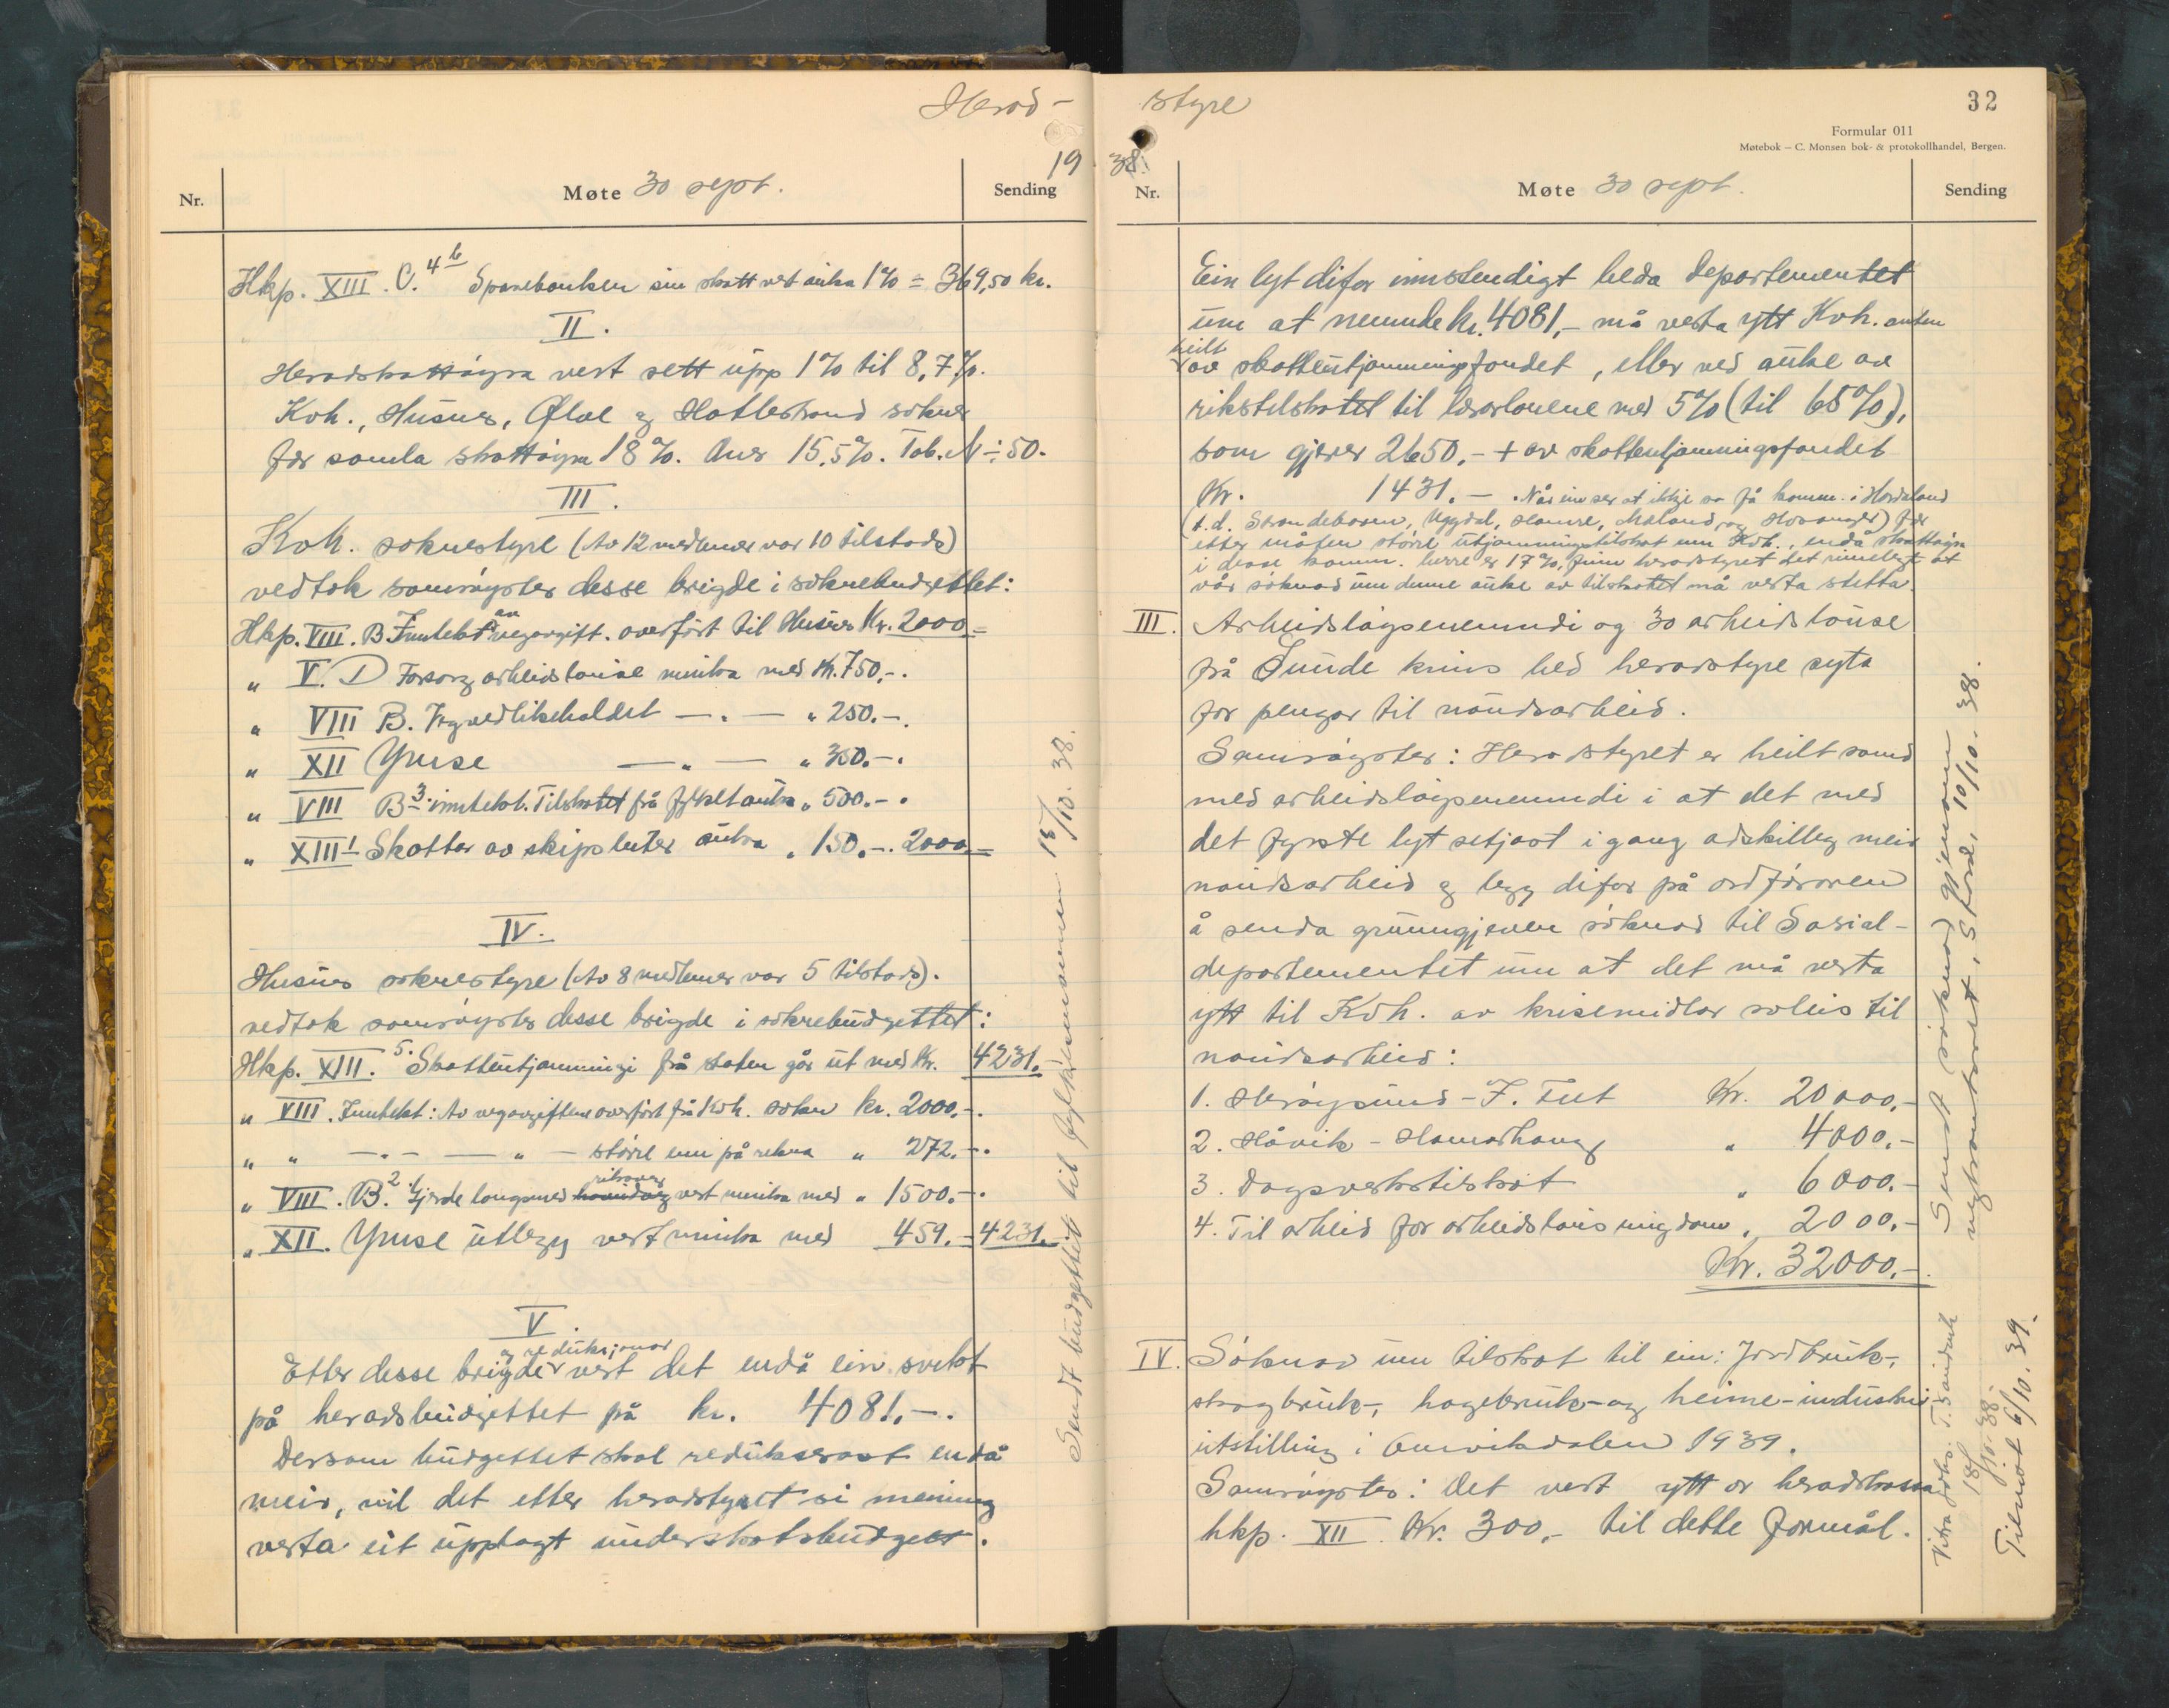 Herad-
19
Nr.
Møte 30 sept.
Sending
Hkp. XIII. C. 4 b Sparebanken sin skatt vert auka 1% = 369,50 kr.
II.
Heradskattøyra vert sett upp 1% til 8,7%.
Kvh., Husnes, Ølve og Hatlestrand sokner
før samla skattøyra 18%. Anes 15,5%. Tab. N ÷ 50.
III.
Kvh. soknestyre (Av 12 medlemer var 10 tilstads)
vedtok samrøystes desse brigde i soknebudgettet:
Hkp. VIII. B Inntekt av vegavgift. overført til Husnes Kr. 2000.=
" V. D Forsorg arbeidslause minka med kr. 750,-.
" VIII B. Vegvedlikehaldet — . — " 250.-.
" XII Ymse — " — " 350.-.
" VIII B 3. inntekt. Tilskotet frå fylket auka " 500.-.
" XIII 1 Skattar av skipsluter auka " 150.-. 2000.=
IV.
Husnes soknestyre (Av 8 medlemer var 5 tilstads).
vedtok samrøystes desse brigde i soknebudgettet:
Hkp. XIII. 5. Skatteutjamningi frå staten går ut med Kr. 4231.-
" VIII. Inntekt: Av vegavgiftene overført frå Kvh. sokn kr. 2000.-.
" " — . — — " — større enn på rekna " 272.-.
" VIII. B. 2. Gjerde langsmed riksveg vert minka med " 1500.-.
" XII. Ymse utlegg vert minka med 459.- 4231.-
V.
og reduksjonar
Etter desse brigde vert det endå ein svikt
på heradsbudgettet på kr. 4081.-.
Dersom budgettet skal reduserast endå
meir, vil det etter heradstyret si meining
verta eit upplagt underskotsbudgett.
Sendt budgettet til fylkesmannen 15/10. 38.
styre
32
Formular 011
Møtebok – C. Monsen bok- & protokollhandel, Bergen.
38.
Nr.
Møte 30 sept.
Sending
Ein lyt difor innstendigt beda departementet
um at nemnde kr. 4081,- må verta ytt Kvh. anten
heilt
av skatteutjamningsfondet, eller ved auke av
rikstilskotet til lærarlønene med 5% (til 65%),
som gjerer 2650,- + av skatteutjamningsfondet
Kr. 1431.-. Når ein ser at ikkje so få komm. i Hordaland
(t.d. Strandebarm, Uggdal, Hamre, Meland, og Hosanger) fær
etter måten større utjamningstilskot enn Kvh., endå skattøyra
i desse komm. berre er 17%, finn heradstyret det rimeleg at
vår søknad um denne auke av tilskotet må verta støtta.
III. Arbeidsløysenemndi og 30 arbeidslause
frå Sunde krins bed heradstyre syta
for pengar til naudsarbeid.
Samrøystes: Heradstyret er heilt samd
med arbeidsløysenemndi i at det med
det fyrste lyt setjast i gang adskilleg meir
naudsarbeid og legg difor på ordføraren
å senda grunngjeven søknad til Sosial-
departementet um at det må verta
ytt til Kvh. av krisemidlar soleis til
naudsarbeid:
1. Herøysund - J. Tut Kr. 20000,-
2. Håvik - Hamarhaug " 4000.-
3. Dagsverkstilskot " 6000.-
4. Til arbeid for arbeidslaus ungdom " 2000.-
Kr. 32000.-.
IV. Søknad um tilskot til ein: Jordbruk-,
skogbruk-, hagebruk- og heime-industri-
utstilling i Omvikdalen 1939.
Samrøystes: Det vert ytt or heradskassa
hkp. XII. Kr. 300,- til dette formål.
Sendt søknad gjenom
vegkontoret, Stord, 10/10. 38.
18/10. 38.
Tilvist 6/10. 39.